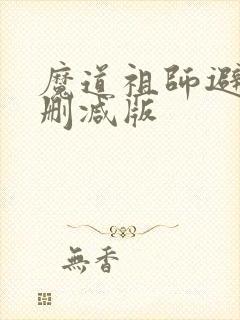 魔道祖師避
刪减版
無香